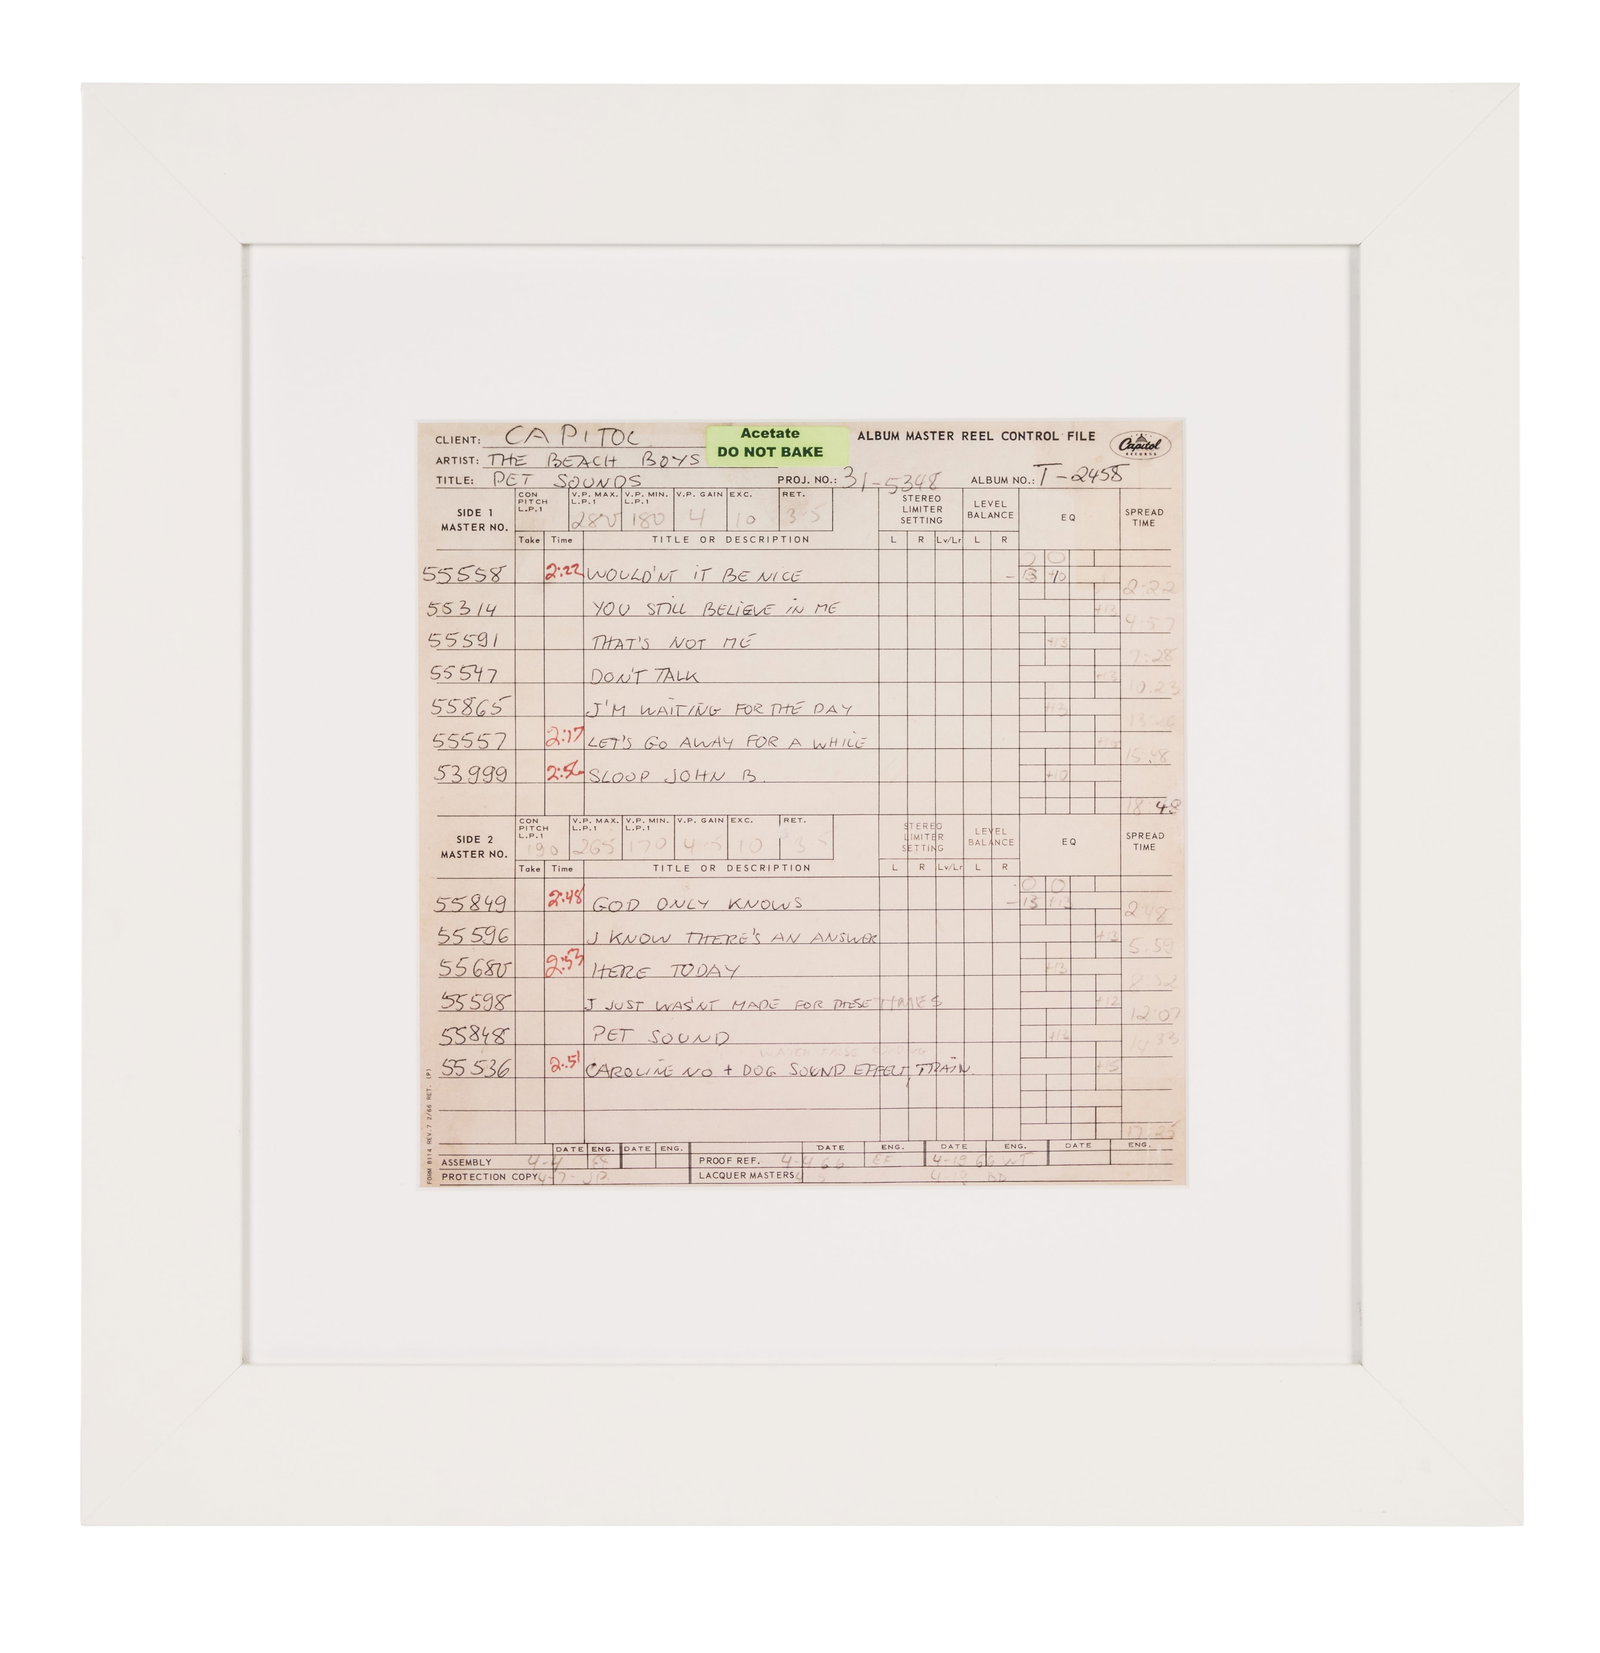 CLIENT: CAPITOL
Acetate
DO NOT BAKE
ALBUM MASTER REEL CONTROL FILE
Capitol
RECORDS
ARTIST: THE BEACH BOYS
TITLE: PET SOUNDS PROJ. NO.: 31-5348 ALBUM NO.: T-2458
SIDE 1
MASTER NO.
CON PITCH L.P.1 V.P. MAX. L.P.1 V.P. MIN. L.P.1 V.P. GAIN EXC. RET. STEREO LIMITER SETTING LEVEL BALANCE EQ SPREAD TIME
280 180 4 10 3 5
Take Time TITLE OR DESCRIPTION L R Lv/Lr L R
0 0
55558 2:22 WOULD'NT IT BE NICE -13 +10 2:22
55314 YOU STILL BELIEVE IN ME +13 4-57
55591 THAT'S NOT ME +13 7-28
55547 DON'T TALK +13 10.23
55865 I'M WAITING FOR THE DAY +13
55557 2:17 LET'S GO AWAY FOR A WHILE 15:48
53999 2:56 SLOOP JOHN B. +10
18 48
SIDE 2
MASTER NO.
CON PITCH L.P.1 V.P. MAX. L.P.1 V.P. MIN. L.P.1 V.P. GAIN EXC. RET. STEREO LIMITER SETTING LEVEL BALANCE EQ SPREAD TIME
190 265 170 4.5 10 3 5
Take Time TITLE OR DESCRIPTION L R Lv/Lr L R
0 0
55849 2:48 GOD ONLY KNOWS -13 +13 2:48
55596 I KNOW THERE'S AN ANSWER +13 5.59
55680 2:53 HERE TODAY +13 8:52
55598 I JUST WAS'NT MADE FOR THESE TIMES +12 12:07
55848 PET SOUND +13 14 33
WATCH FALSE ENDING
55536 2:51 CAROLINE NO + DOG SOUND EFFECT, TRAIN. +5
17:25
DATE ENG. DATE ENG. DATE ENG. DATE ENG. DATE ENG.
ASSEMBLY 4-4 EF PROOF REF. 4-4 66 EF 4-18 66 WT
PROTECTION COPY 4-7- JP LACQUER MASTERS 4 19
FORM 8114 REV.7 2/66 RET. (P)